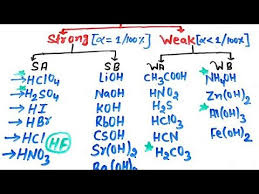 Strong [α = 1/100%] Weak [α < 1/100%]
SA SB WA WB
→ HClO4 LiOH CH3COOH NH4OH
→ H2SO4 NaOH HNO2 Zn(OH)2
→ HI KOH H2S Al(OH)3
→ HBr RbOH HClO Fe(OH)2
→ HCl HF CSOH HCN
→ HNO3 Sr(OH)2 H2CO3
Ba(OH)2